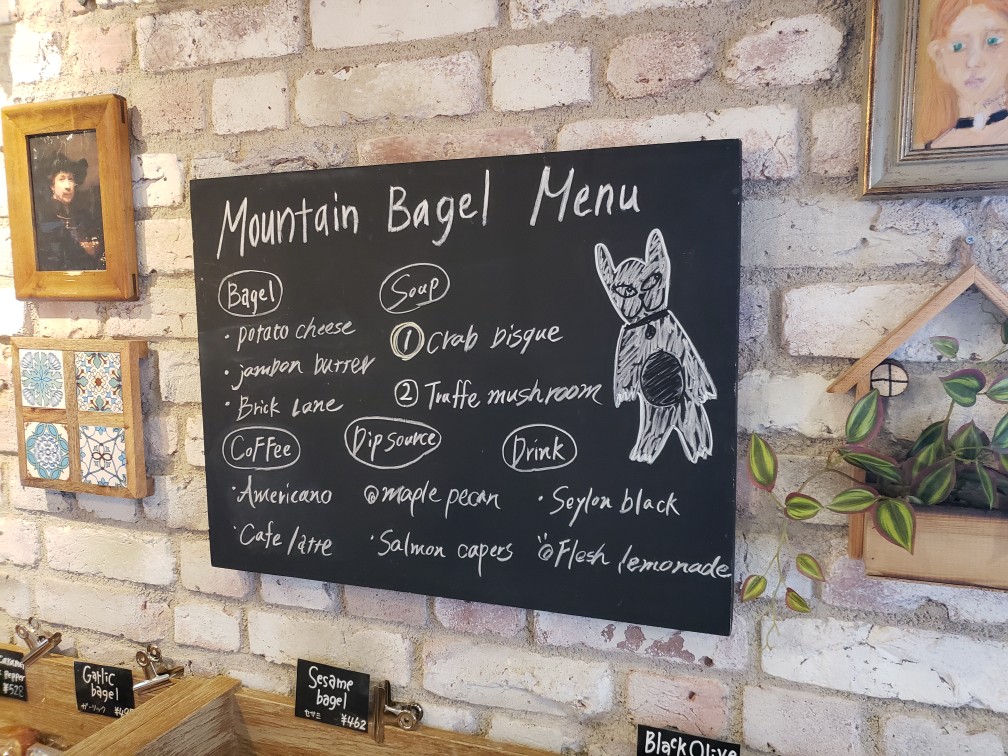 Mountain Bagel Menu
Bagel
• potato cheese
• jambon burrer
• Brick Lane
Soup
① Crab bisque
② Traffe mushroom
Coffee
• Americano
• Cafe latte
Dip source
◎ maple pecan
• Salmon capers
Drink
• Seylon black
◎ Flesh lemonade
Pepper
¥528
Garlic
bagel
ガーリック
Sesame
bagel
セサミ ¥462
Black Olive